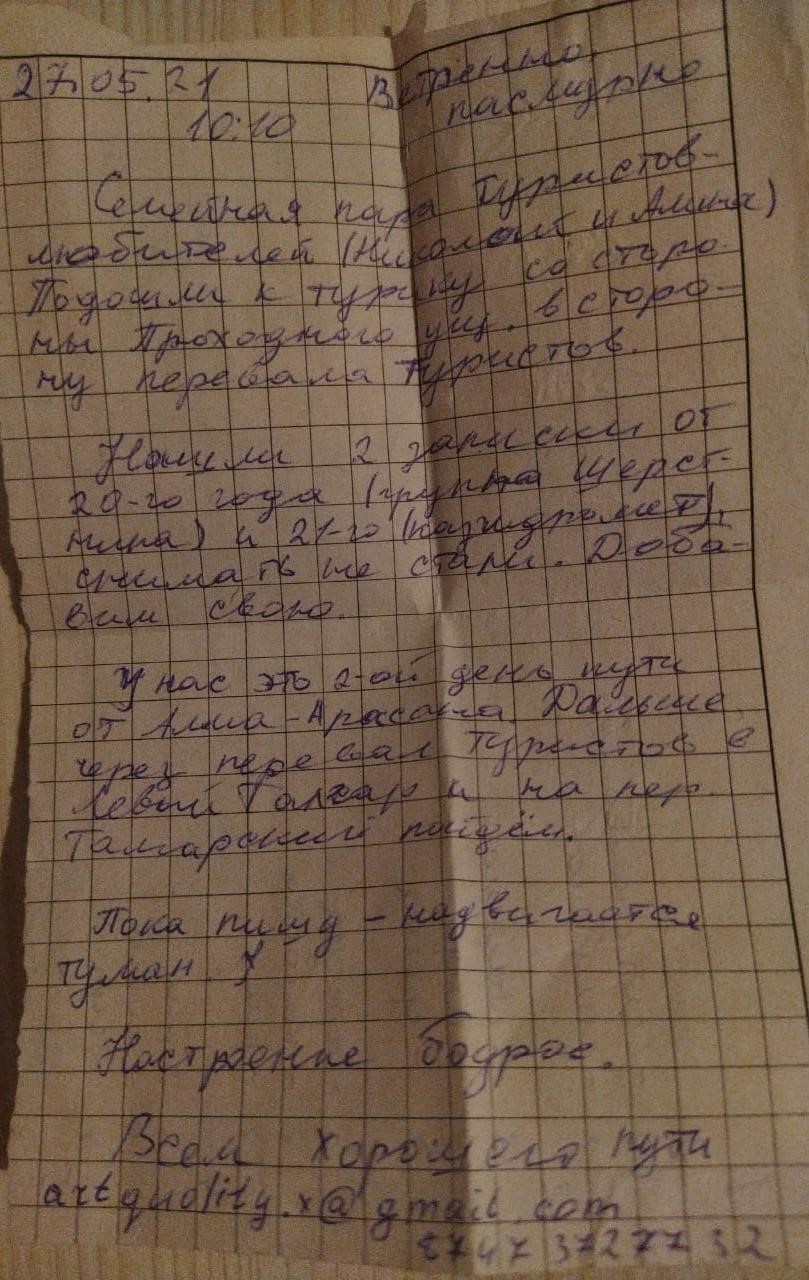 27.05.21 Ветренно,
10:10 пасмурно
Семейная пара туристов-
любителей (Николай и Алина)
Подошли к турику со сторо
ны Проходного ущ. в сторо-
ну перевала Туристов.
Нашли 2 записки от
20-го года (группа Шерст-
нина) и 21-го (казгидромет),
снимать не стали. Доба-
вим свою.
У нас это 2-ой день пути
от Алма-Арасана. Дальше
через перевал Туристов в
Левый Талгар и на пер.
Талгарский пойдём.
Пока пишу - надвигается
туман
Настроение бодрое.
Всем хорошего пути
artquality.x@gmail.com
87473727732